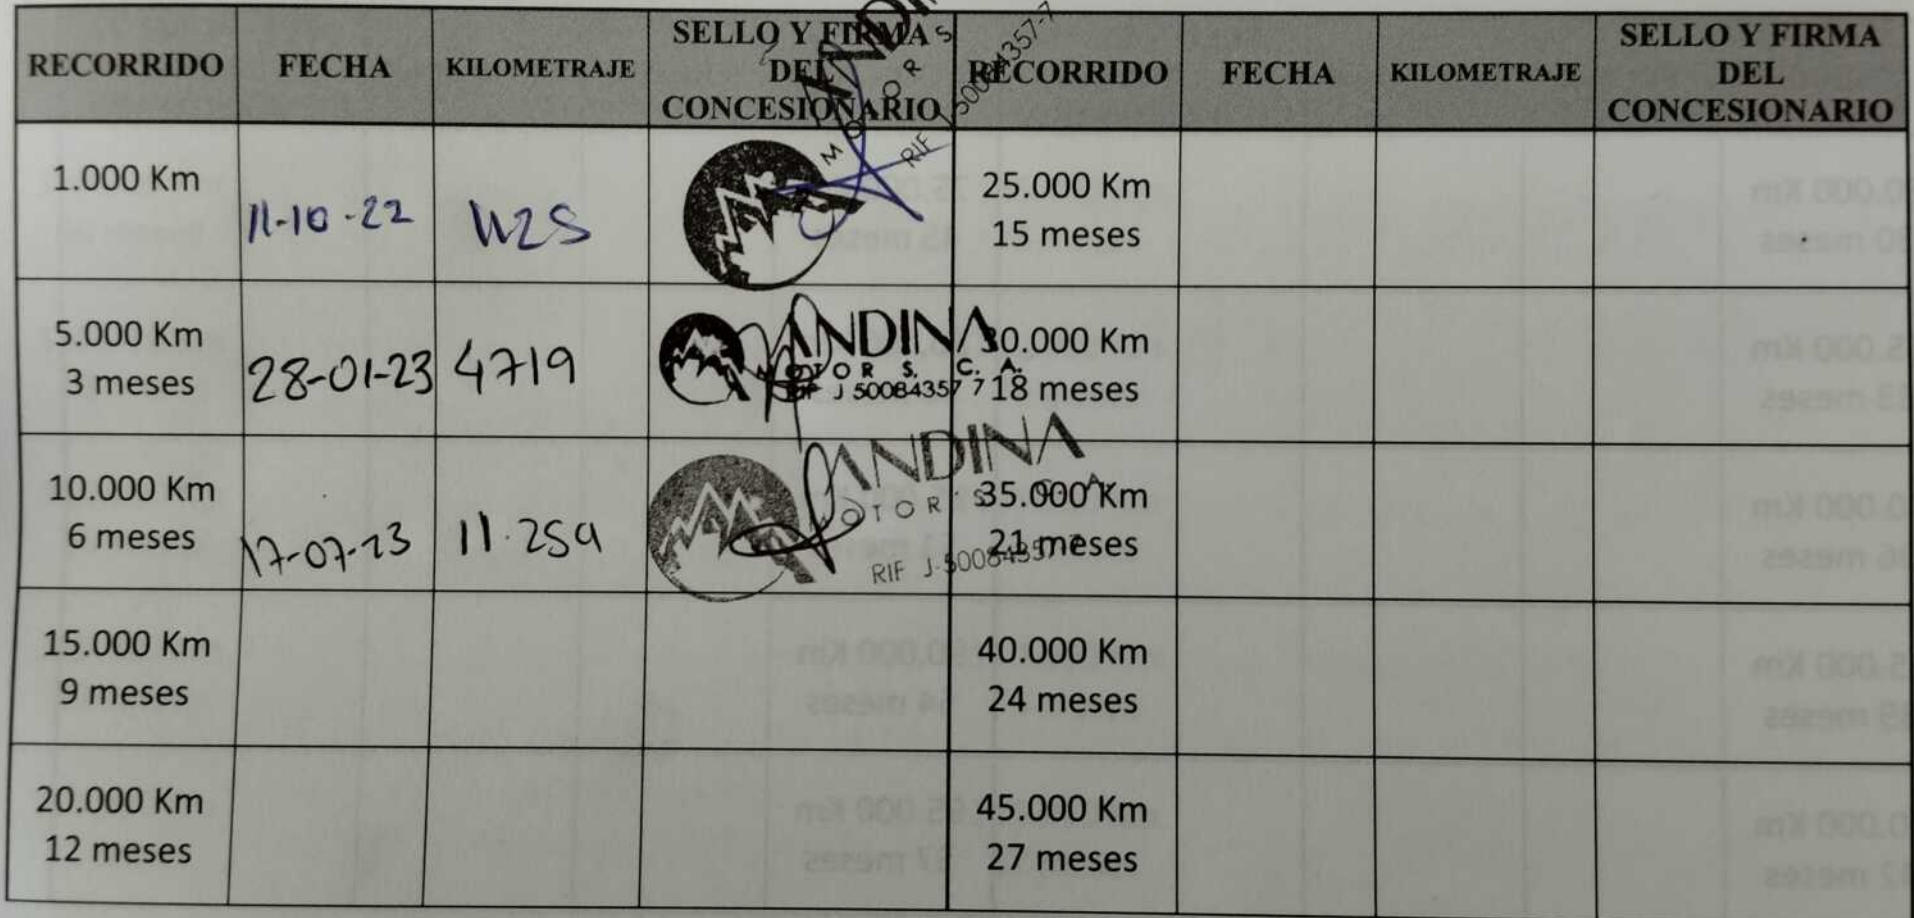 RECORRIDO FECHA KILOMETRAJE SELLO Y FIRMA DEL CONCESIONARIO RECORRIDO FECHA KILOMETRAJE SELLO Y FIRMA DEL CONCESIONARIO
1.000 Km
11-10-22 1125
MOTORS
RIF J 50084357-7
25.000 Km
15 meses
5.000 Km
3 meses
28-01-23 4719
ANDINA
MOTORS, C. A.
RIF J 50084357 7
30.000 Km
18 meses
10.000 Km
6 meses
17-07-23 11.259
ANDINA
MOTOR'S C A
RIF J-50084357-7
35.000 Km
21 meses
15.000 Km
9 meses
40.000 Km
24 meses
20.000 Km
12 meses
45.000 Km
27 meses